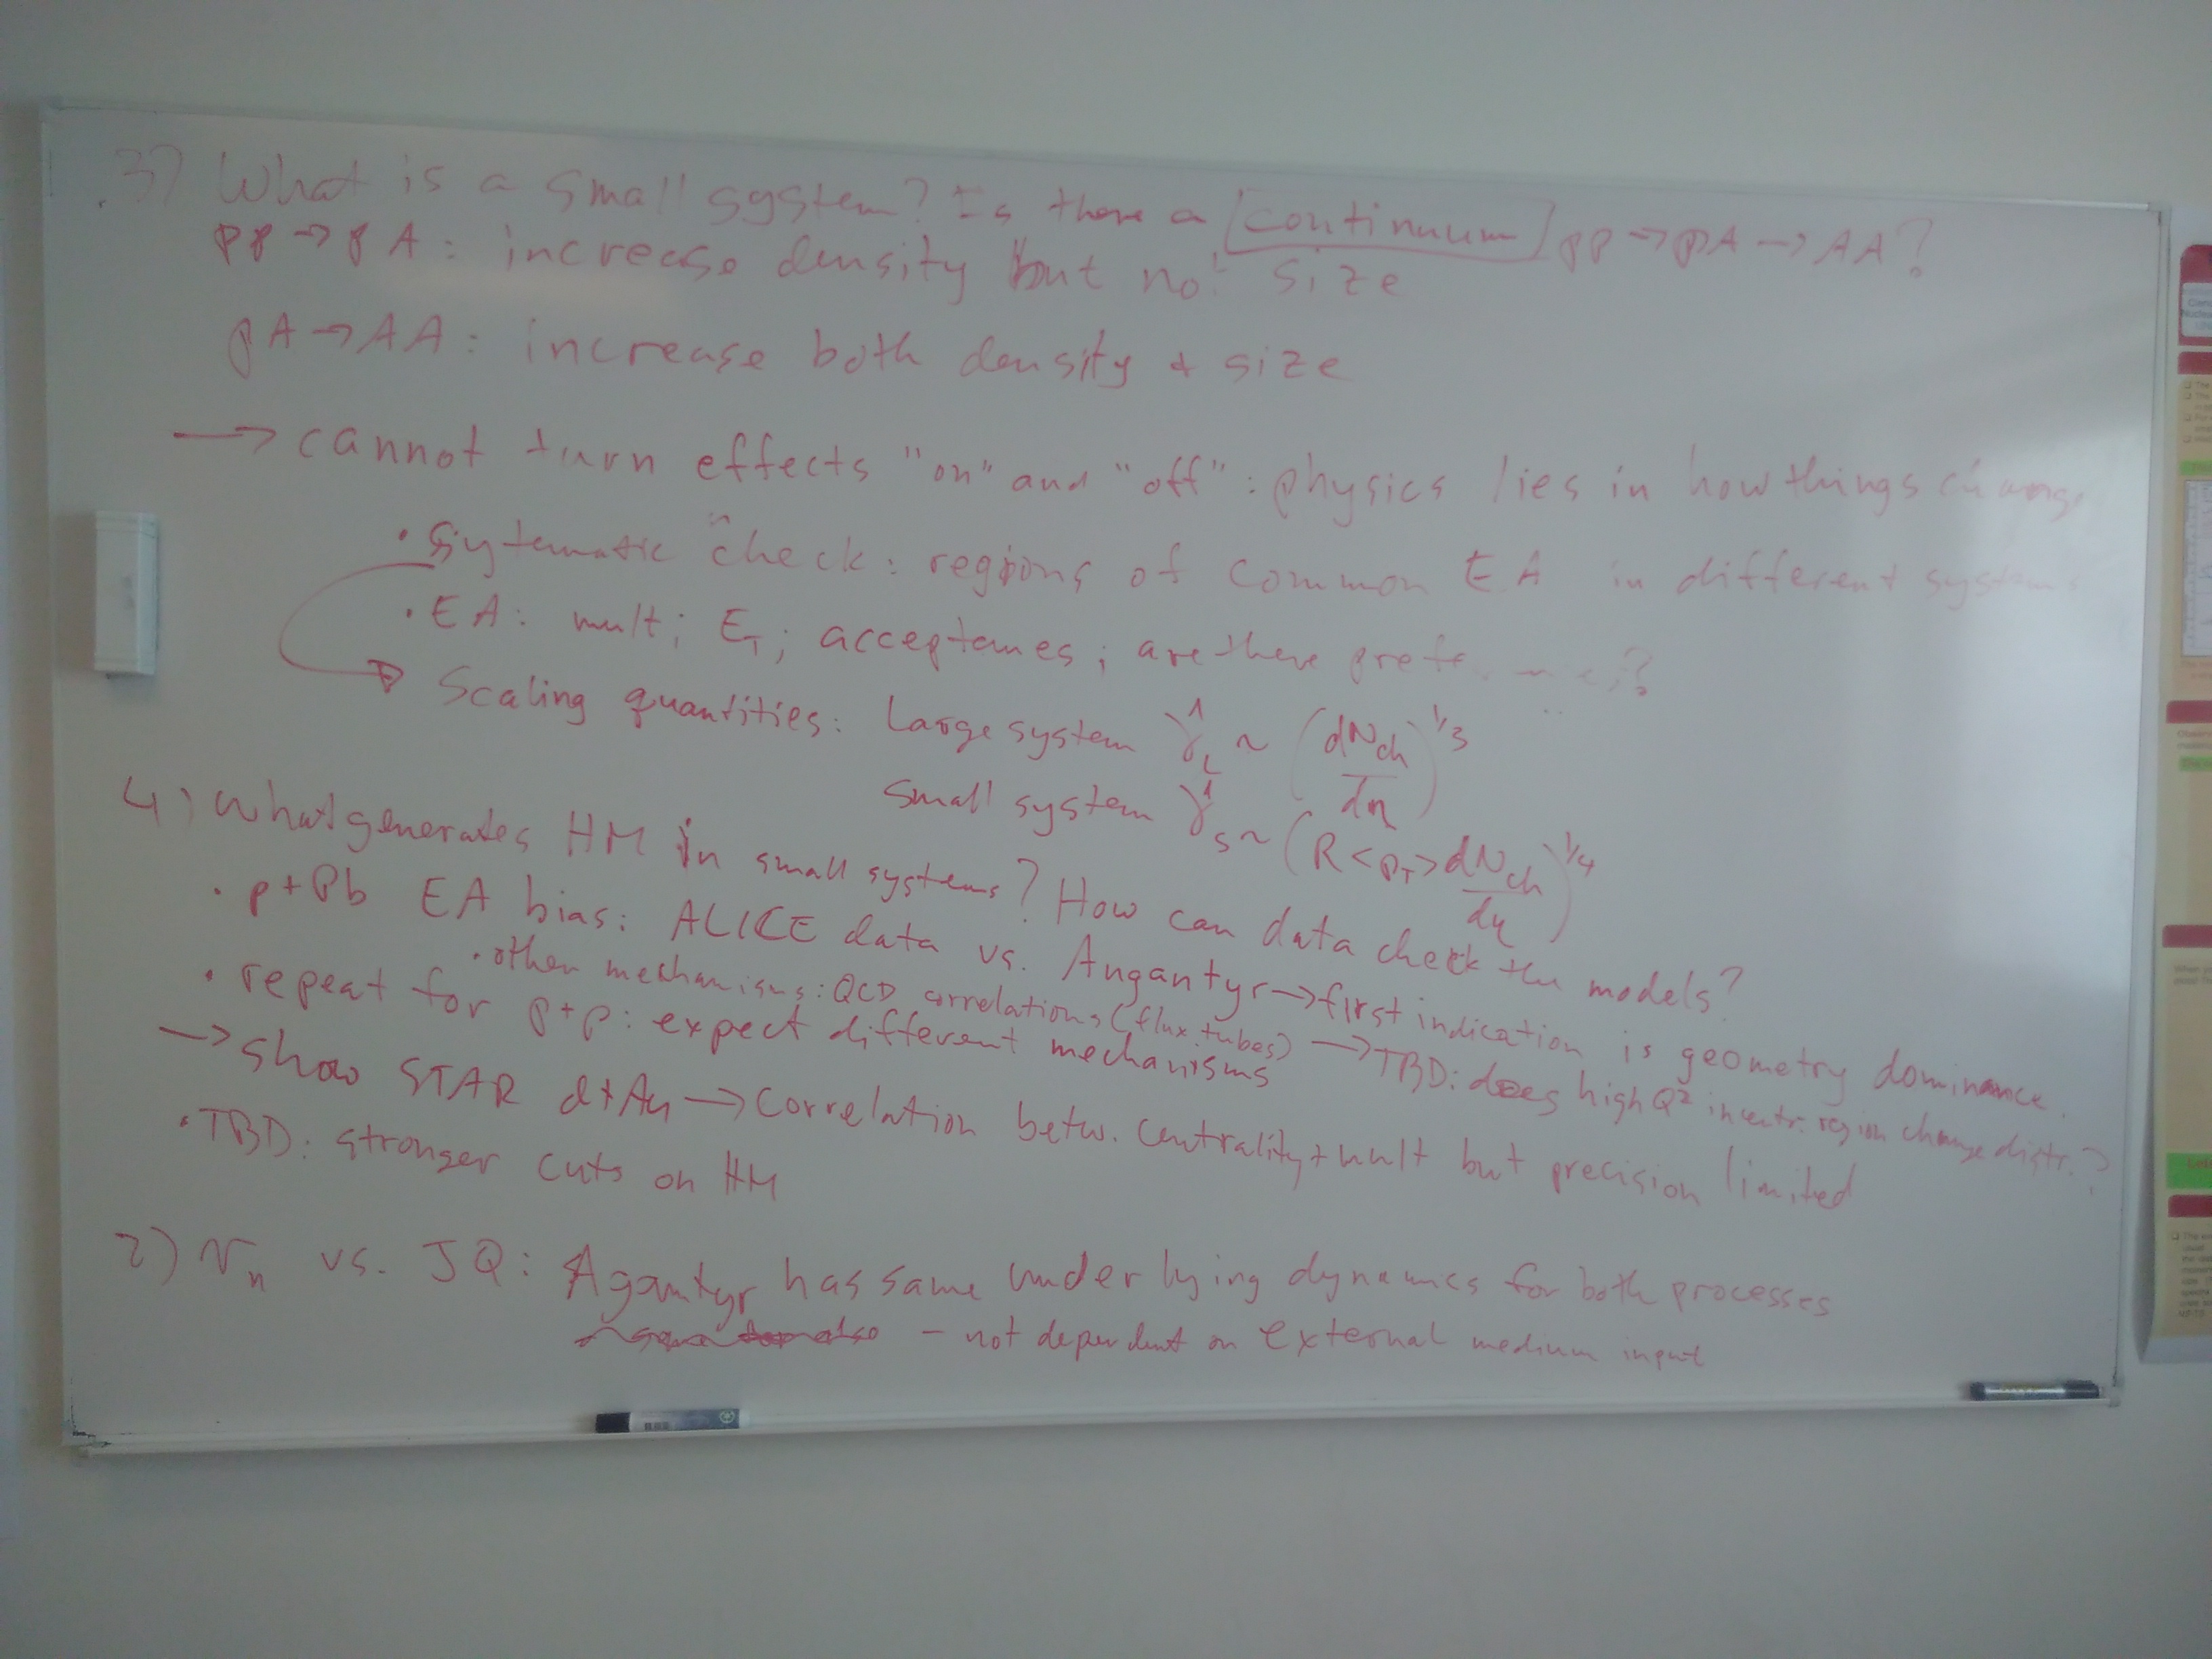 3) What is a small system? Is there a [continuum] pp → pA → AA?
pp → pA: increase density but not size
pA → AA: increase both density + size
→ cannot turn effects "on" and "off": physics lies in how things change
• Sytematic check: regions of common EA in different systems
• EA: mult; E_T; acceptances; are there
Scaling quantities: Large system γ̂_L ~ (dN_ch/dη)^1/3
Small system γ̂_S ~ (R <p_T> dN_ch/dη)^1/4
4) What generates HM in small systems? How can data check the models?
• p+Pb EA bias: ALICE data vs. Angantyr → first indication is geometry dominance.
• other mechanisms: QCD correlations (flux tubes) → TBD: does high Q² in centr. region change distr.?
• repeat for p+p: expect different mechanisms
→ show STAR d+Au → Correlation betw. centrality + mult but precision limited
• TBD: stronger cuts on HM
2) v_n vs. JQ: Agantyr has same underlying dynamics for both processes
– not dependent on external medium input